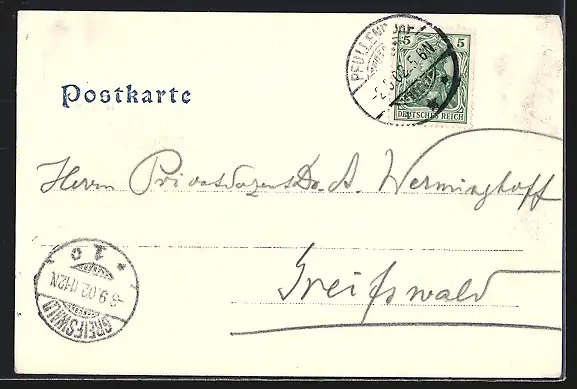 Postkarte
PFULLENDORF
5 5
DEUTSCHES REICH
Herrn Privatdozent Dr. A. Werminghoff
Greifswald
GREIFSWALD
1 c